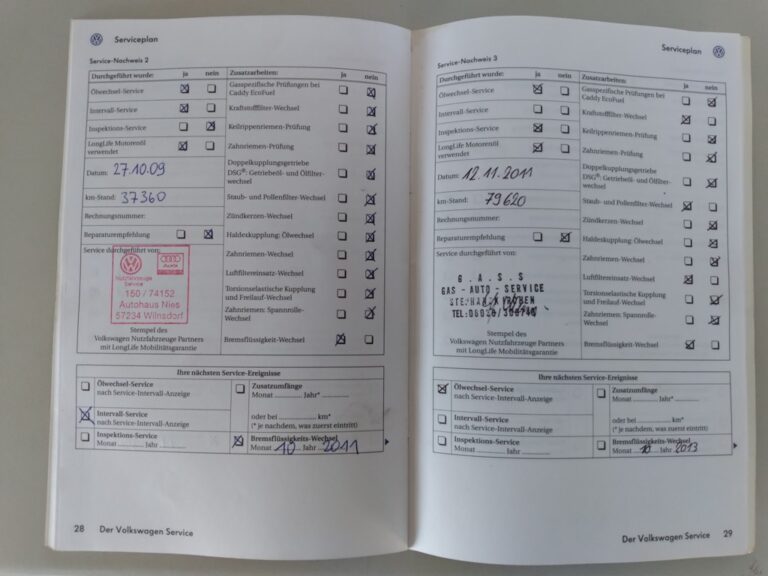 Serviceplan
Service-Nachweis 2
Durchgeführt wurde: ja nein Zusatzarbeiten: ja nein
Ölwechsel-Service
Intervall-Service
Inspektions-Service
LongLife Motorenöl
verwendet
Datum: 27.10.09
km-Stand: 37360
Rechnungsnummer:
Reparaturempfehlung
Service durchgeführt von:
Nutzfahrzeuge
Service
Audi
Service
150 / 74152
Autohaus Nies
57234 Wilnsdorf
Stempel des
Volkswagen Nutzfahrzeuge Partners
mit LongLife Mobilitätsgarantie
Gasspezifische Prüfungen bei
Caddy EcoFuel
Kraftstofffilter-Wechsel
Keilrippenriemen-Prüfung
Zahnriemen-Prüfung
Doppelkupplungsgetriebe
DSG®: Getriebeöl- und Ölfilter-
wechsel
Staub- und Pollenfilter-Wechsel
Zündkerzen-Wechsel
Haldexkupplung: Ölwechsel
Zahnriemen-Wechsel
Luftfiltereinsatz-Wechsel
Torsionselastische Kupplung
und Freilauf-Wechsel
Zahnriemen: Spannrolle-
Wechsel
Bremsflüssigkeits-Wechsel
Ihre nächsten Service-Ereignisse
Ölwechsel-Service
nach Service-Intervall-Anzeige
Intervall-Service
nach Service-Intervall-Anzeige
Inspektions-Service
Monat ........ Jahr ........
Zusatzumfänge
Monat ........ Jahr* ........
oder bei ........ km*
(* je nachdem, was zuerst eintritt)
Bremsflüssigkeits-Wechsel
Monat 10 Jahr 2011
28 Der Volkswagen Service
Serviceplan
Service-Nachweis 3
Durchgeführt wurde: ja nein Zusatzarbeiten: ja nein
Ölwechsel-Service
Intervall-Service
Inspektions-Service
LongLife Motorenöl
verwendet
Datum: 12.11.2011
km-Stand: 79620
Rechnungsnummer:
Reparaturempfehlung
Service durchgeführt von:
G.A.S.S
GAS - AUTO - SERVICE
Stempel des
Volkswagen Nutzfahrzeuge Partners
mit LongLife Mobilitätsgarantie
Gasspezifische Prüfungen bei
Caddy EcoFuel
Kraftstofffilter-Wechsel
Keilrippenriemen-Prüfung
Zahnriemen-Prüfung
Doppelkupplungsgetriebe
DSG®: Getriebeöl- und Ölfilter-
wechsel
Staub- und Pollenfilter-Wechsel
Zündkerzen-Wechsel
Haldexkupplung: Ölwechsel
Zahnriemen-Wechsel
Luftfiltereinsatz-Wechsel
Torsionselastische Kupplung
und Freilauf-Wechsel
Zahnriemen: Spannrolle-
Wechsel
Bremsflüssigkeits-Wechsel
Ihre nächsten Service-Ereignisse
Ölwechsel-Service
nach Service-Intervall-Anzeige
Intervall-Service
nach Service-Intervall-Anzeige
Inspektions-Service
Monat ........ Jahr ........
Zusatzumfänge
Monat ........ Jahr* ........
oder bei ........ km*
(* je nachdem, was zuerst eintritt)
Bremsflüssigkeits-Wechsel
Monat 10 Jahr 2013
Der Volkswagen Service 29